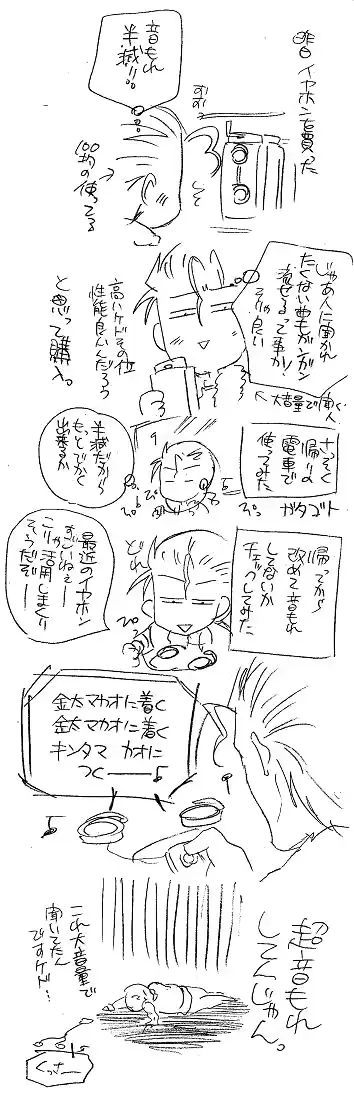 昨日イヤホンを買った
音もれ
半減!!
100均の使ってる
じゃあ人に聞かれ
たくない曲もガンガン
流せるって事か!
そりゃ良い
大音量で聞く人
高いケドその位
性能良いんだろう
と思って購入。
さっそく
帰りの
電車で
使ってみた
ガタゴト
半減だから
もっとでかく
出来るか
帰ってから
改めて音もれ
してないか
チェックしてみた
どれ
最近のイヤホン
すごいねぇー
こりゃ活用しまくり
そうだぞー
金太マカオに着く
金太マカオに着く
キンタマ カオに
つくー
超音もれ
してんじゃん。
これ大音量で
聞いてたん
ですケド…